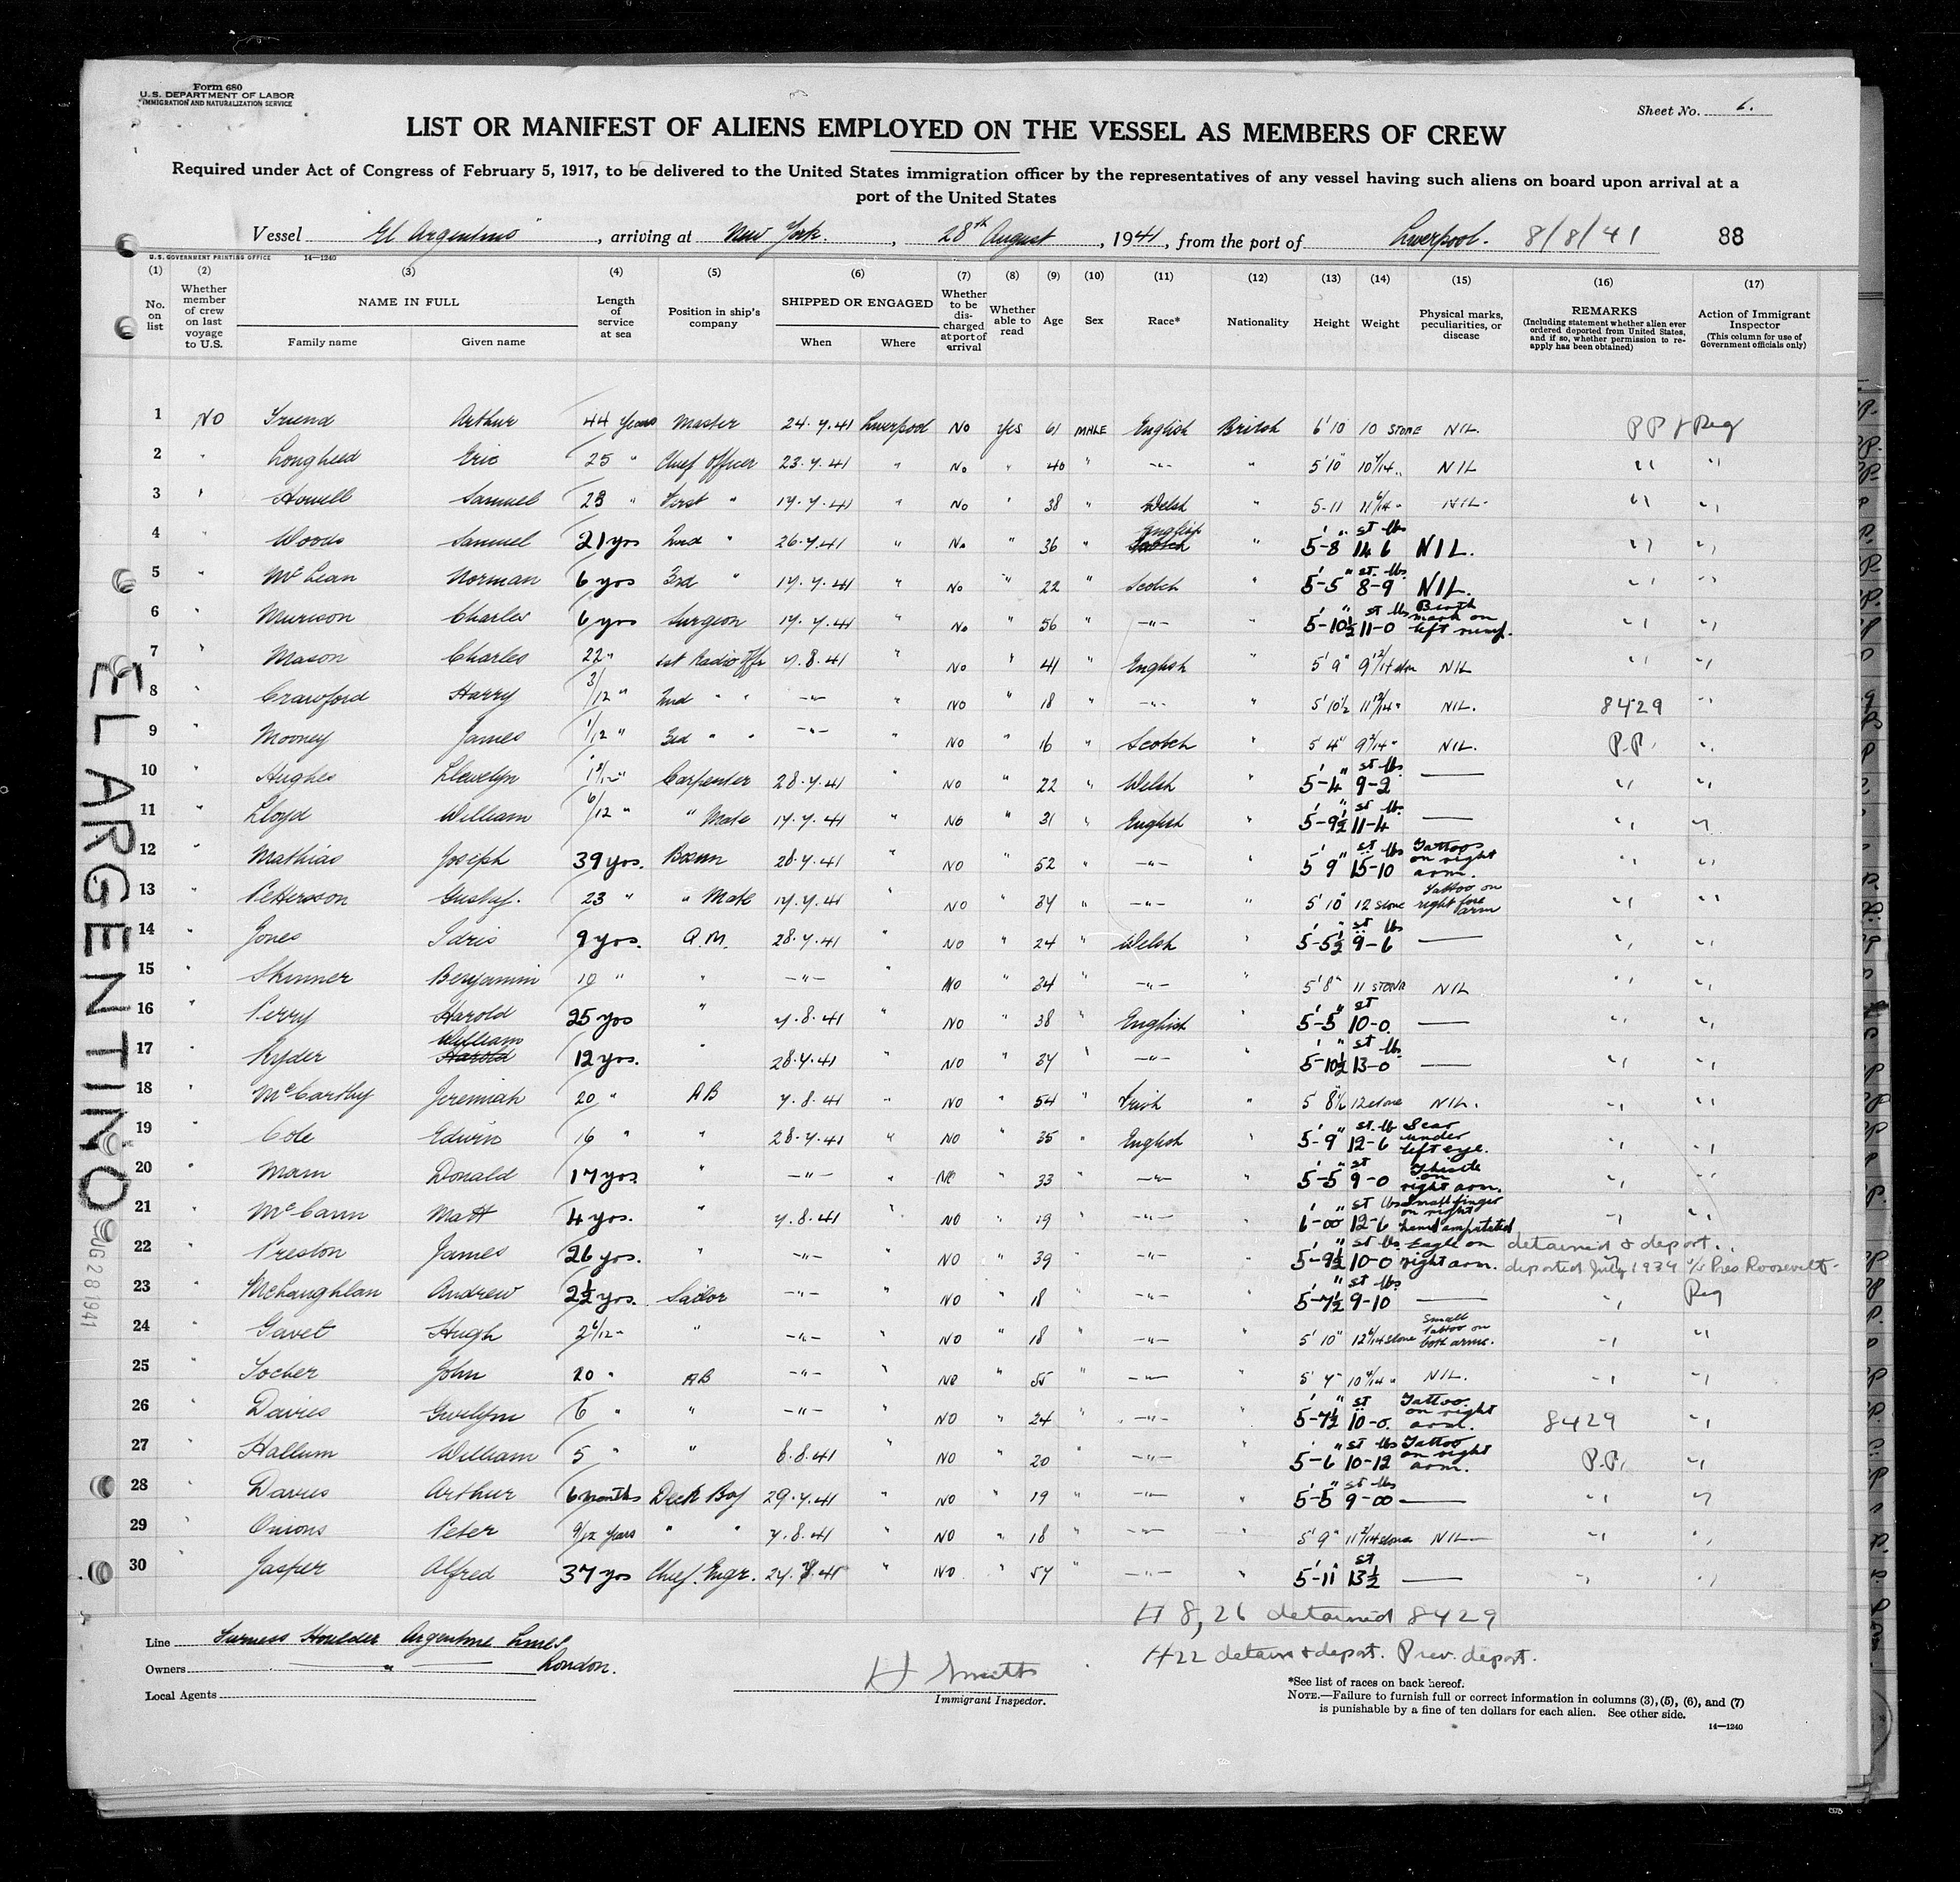 Form 680
U.S. DEPARTMENT OF LABOR
IMMIGRATION AND NATURALIZATION SERVICE
Sheet No. 1.
LIST OR MANIFEST OF ALIENS EMPLOYED ON THE VESSEL AS MEMBERS OF CREW
Required under Act of Congress of February 5, 1917, to be delivered to the United States immigration officer by the representatives of any vessel having such aliens on board upon arrival at a
port of the United States
Vessel "El Argentino", arriving at New York., 28th August, 1941, from the port of Liverpool. 8/8/41 88
U.S. GOVERNMENT PRINTING OFFICE 14—1240
(1) (2) (3) (4) (5) (6) (7) (8) (9) (10) (11) (12) (13) (14) (15) (16) (17)
No. on list
Whether member of crew on last voyage to U.S.
NAME IN FULL
Family name
Given name
Length of service at sea
Position in ship's company
SHIPPED OR ENGAGED
When
Where
Whether to be discharged at port of arrival
Whether able to read
Age
Sex
Race*
Nationality
Height
Weight
Physical marks, peculiarities, or disease
REMARKS
(Including statement whether alien ever ordered deported from United States, and if so, whether permission to reapply has been obtained)
Action of Immigrant Inspector
(This column for use of Government officials only)
1 NO Friend Arthur 44 Years Master 24.7.41 Liverpool No Yes 61 MALE English British 6'10 10 STONE NIL. PP & Reg
2 " Longheed Eric 25 " Chief Officer 23.7.41 " No " 40 " -"- " 5'10" 10 4/14 " NIL " "
3 " Howell Samuel 23 " First " 17.7.41 " No " 38 " Welsh " 5-11 11 6/14 " NIL. " "
4 " Woods Samuel 21 yrs 2nd " 26.7.41 " No " 36 " English " 5'-8" 14 st 6 lbs NIL. " "
5 " McLean Norman 6 yrs 3rd " 17.7.41 " No " 22 " Scotch " 5'-5" 8-9 st. lbs. NIL. " "
6 " Murison Charles 6 yrs Surgeon 17.7.41 " No " 56 " -"- " 5'-10½" 11-0 st lbs Birth mark on left rump. " "
7 " Mason Charles 22 " 1st Radio Offr 7.8.41 " No " 41 " English " 5'9" 9 12/14 stn NIL " "
8 " Crawford Harry 3/12 " 2nd " " -"- " NO " 18 " -"- " 5'10½ 11 12/14 " NIL. 8429 "
9 " Mooney James 1/12 " 3rd " " -"- " NO " 16 " Scotch 5'4" 9 2/14 " NIL. P.P. "
10 " Hughes Llewelyn Carpenter 28.7.41 " NO " 22 " Welsh " 5'-4" 9-2 st lbs. — " "
11 " Lloyd William 6/12 " " Mate 17.7.41 " NO " 31 " English " 5'-9½" 11-4 st lbs. — " "
12 " Mathias Joseph 39 yrs. Bosun 28.7.41 " NO " 52 " -"- " 5'9" 15-10 st lbs Tattoos on right arm. " "
13 " Pettersson Gustaf. 23 " " Mate 17.7.41 NO " 34 " -"- " 5'10" 12 stone Tattoo on right fore arm " "
14 " Jones Idris 9 yrs. Q.M. 28.7.41 " NO " 24 " Welsh " 5'-5½" 9-6 st lbs — " "
15 " Skinner Benjamin 19 " " -"- NO " 34 " -"- " 5'8" 11 STONE NIL " "
16 " Perry Harold 25 yrs " 7.8.41 " NO " 38 " English " 5'-5" 10-0. st — " "
17 " Ryder William Harold 12 yrs. " 28.7.41 " NO " 34 " -"- " 5'-10½" 13-0 st lbs. — " "
18 " McCarthy Jeremiah 20 " AB 7.8.41 " NO " 54 " Irish " 5 8½ 12 stone NIL. " "
19 " Cole Edwin 16 " " 28.7.41 " NO " 35 " English " 5'-9" 12-6 st. lb Scar under left eye. " "
20 " Mann Donald 17 yrs. " -"- " NO " 33 " -"- " 5'-5" 9-0 st Thistle on right arm. " "
21 " McCann Matt 4 yrs. " 7.8.41 " NO " 19 " -"- " 6'-00" 12-6 st lbs Small finger on right hand amputated " "
22 " Preston James 26 yrs. " -"- " NO " 39 " -"- " 5'-9½" 10-0 st lbs Eagle on right arm. detained & deport. deported July 1934 s/s Pres Roosevelt
23 " McLaughlan Andrew 2½ yrs. Sailor -"- NO " 18 " -"- " 5'-7½" 9-10 st lbs — " Reg
24 " Gavet Hugh 2 6/12 " " -"- " NO " 18 " -"- " 5'10" 12 6/14 stone Small tattoo on both arms. " "
25 " Tocher John 20 " AB -"- " NO " 55 " -"- " 5'7" 10 4/14 " NIL. " "
26 " Davies Gwilym 6 " " -"- " NO " 24 " -"- " 5'-7½" 10-0. st Tattoo. on right arm. 8429 "
27 " Hallum William 5 " " 6.8.41 " NO " 20 " -"- " 5'-6" 10-12 st lbs Tattoo on right arm. P.P. "
28 " Davies Arthur 6 months Deck Boy 29.7.41 " NO " 19 " -"- " 5'-5" 9-00 st lbs — " "
29 " Onions Peter 9/12 years " " 7.8.41 " NO " 18 " -"- " 5'9" 11 2/14 stone NIL " "
30 " Jasper Alfred 37 yrs Chief. Engr. 24.7.41 " NO. " 57 " -"- " 5'-11" 13½ st — " "
# 8, 26 detained 8429
#22 detain & deport. Prev. deport.
Line Furness Houlder Argentine Lines
Owners — " — London.
Local Agents
Immigrant Inspector.
*See list of races on back hereof.
NOTE.—Failure to furnish full or correct information in columns (3), (5), (6), and (7)
is punishable by a fine of ten dollars for each alien. See other side.
14—1240
EL ARGENTINO
AUG 28 1941